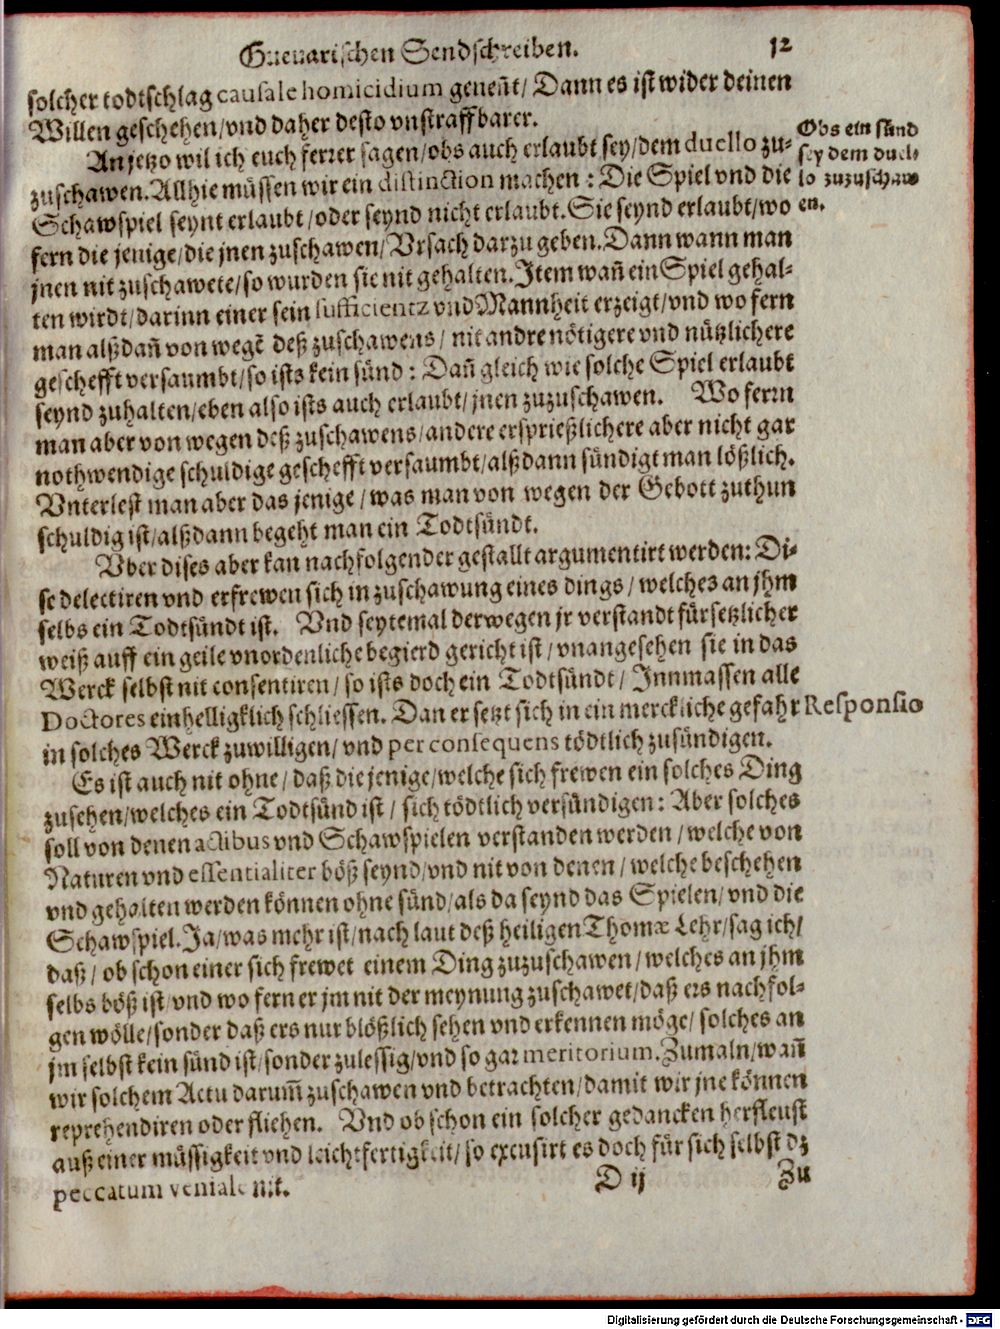 Guevarischen Sendschreiben. 12
solcher todtschlag causale homicidium geneñt/ Dann es ist wider deinen
Willen geschehen/vnd daher desto vnstraffbarer.
An jetzo wil ich euch ferrer sagen/obs auch erlaubt sey/dem duello zu-
zuschawen. Allhie müssen wir ein distinction machen: Die Spiel vnd die
Schawspiel seynt erlaubt/oder seynd nicht erlaubt. Sie seynd erlaubt/wo
fern die jenige/die jnen zuschawen/Vrsach darzu geben. Dann wann man
jnen nit zuschawete/so wurden sie nit gehalten. Item wañ ein Spiel gehal-
ten wirdt/darinn einer sein sufficientz vnd Mannheit erzeigt/vnd wo fern
man alßdañ von wegẽ deß zuschawens/ nit andre nötigere vnd nützlichere
geschefft versaumbt/so ists kein sünd: Dañ gleich wie solche Spiel erlaubt
seynd zuhalten/eben also ists auch erlaubt/jnen zuzuschawen. Wo fern
man aber von wegen deß zuschawens/andere ersprießlichere aber nicht gar
nothwendige schuldige geschefft versaumbt/alßdann sündigt man lößlich.
Vnterlest man aber das jenige/was man von wegen der Gebott zuthun
schuldig ist/alßdann begeht man ein Todtsündt.
Vber dises aber kan nachfolgender gestallt argumentirt werden: Di-
se delectiren vnd erfrewen sich in zuschawung eines dings/welches an jhm
selbs ein Todtsündt ist. Vnd seytemal derwegen jr verstandt fürsetzlicher
weiß auff ein geile vnordenliche begierd gericht ist/vnangesehen sie in das
Werck selbst nit consentiren/so ists doch ein Todtsündt/ Innmassen alle
Doctores einhelligklich schliessen. Dan er setzt sich in ein merckliche gefahr
in solches Werck zuwilligen/vnd per consequens tödtlich zusündigen.
Es ist auch nit ohne/daß die jenige/welche sich frewen ein solches Ding
zusehen/welches ein Todtsünd ist/ sich tödtlich versündigen: Aber solches
soll von denen actibus vnd Schawspielen verstanden werden/welche von
Naturen vnd essentialiter böß seynd/vnd nit von denen/welche beschehen
vnd gehalten werden können ohne sünd/als da seynd das Spielen/vnd die
Schawspiel. Ja/was mehr ist/nach laut deß heiligen Thomæ Lehr/sag ich/
daß/ob schon einer sich frewet einem Ding zuzuschawen/welches an jhm
selbs böß ist/vnd wo fern er jm nit der meynung zuschawet/daß ers nachfol-
gen wölle/sonder daß ers nur blößlich sehen vnd erkennen möge/ solches an
jm selbst kein sünd ist/sonder zulessig/vnd so gar meritorium. Zumaln/wañ
wir solchem Actu darum̃ zuschawen vnd betrachten/damit wir jne können
reprehendiren oder fliehen. Vnd ob schon ein solcher gedancken herfleust
auß einer müssigkeit vnd leichtfertigkeit/so excusirt es doch für sich selbst dz
peccatum veniale nit.
D ij Zu
Obs ein sünd
sey dem duel-
lo zuzuschaw
en.
Responsio
Digitalisierung gefördert durch die Deutsche Forschungsgemeinschaft - DFG